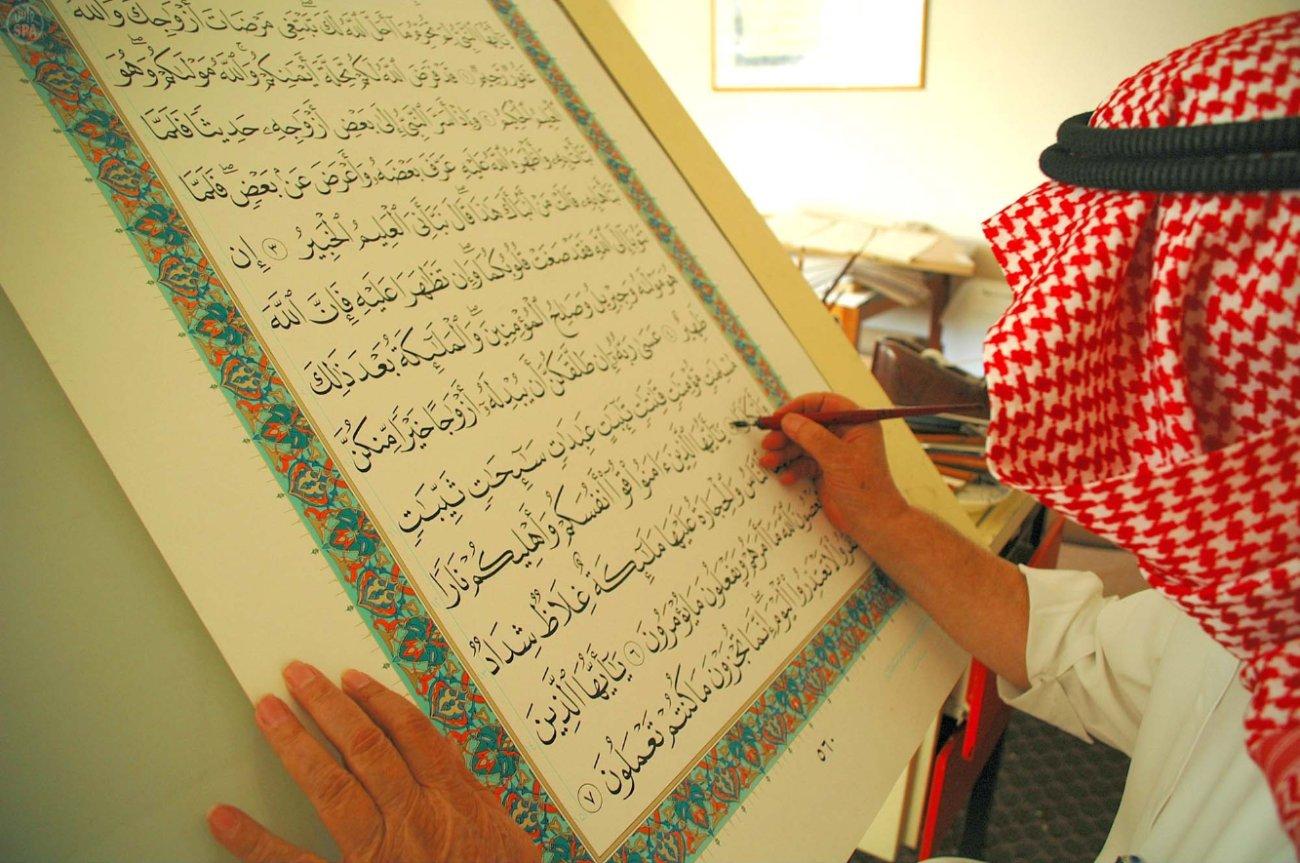 يَٰٓأَيُّهَا ٱلنَّبِىُّ لِمَ تُحَرِّمُ مَآ أَحَلَّ ٱللَّهُ لَكَ تَبْتَغِى مَرْضَاتَ أَزْوَٰجِكَ وَٱللَّهُ
غَفُورٌ رَّحِيمٌ ١ قَدْ فَرَضَ ٱللَّهُ لَكُمْ تَحِلَّةَ أَيْمَٰنِكُمْ وَٱللَّهُ مَوْلَىٰكُمْ وَهُوَ
ٱلْعَلِيمُ ٱلْحَكِيمُ ٢ وَإِذْ أَسَرَّ ٱلنَّبِىُّ إِلَىٰ بَعْضِ أَزْوَٰجِهِۦ حَدِيثًا فَلَمَّا
نَبَّأَتْ بِهِۦ وَأَظْهَرَهُ ٱللَّهُ عَلَيْهِ عَرَّفَ بَعْضَهُۥ وَأَعْرَضَ عَنۢ بَعْضٍ فَلَمَّا
نَبَّأَهَا بِهِۦ قَالَتْ مَنْ أَنۢبَأَكَ هَٰذَا قَالَ نَبَّأَنِىَ ٱلْعَلِيمُ ٱلْخَبِيرُ ٣ إِن
تَتُوبَآ إِلَى ٱللَّهِ فَقَدْ صَغَتْ قُلُوبُكُمَا وَإِن تَظَٰهَرَا عَلَيْهِ فَإِنَّ ٱللَّهَ
هُوَ مَوْلَىٰهُ وَجِبْرِيلُ وَصَٰلِحُ ٱلْمُؤْمِنِينَ وَٱلْمَلَٰٓئِكَةُ بَعْدَ ذَٰلِكَ
ظَهِيرٌ ٤ عَسَىٰ رَبُّهُۥٓ إِن طَلَّقَكُنَّ أَن يُبْدِلَهُۥٓ أَزْوَٰجًا خَيْرًا مِّنكُنَّ
مُسْلِمَٰتٍ مُّؤْمِنَٰتٍ قَٰنِتَٰتٍ تَٰٓئِبَٰتٍ عَٰبِدَٰتٍ سَٰٓئِحَٰتٍ ثَيِّبَٰتٍ
يَٰٓأَيُّهَا ٱلَّذِينَ ءَامَنُوا۟ قُوٓا۟ أَنفُسَكُمْ وَأَهْلِيكُمْ نَارًا
ٱلنَّاسُ وَٱلْحِجَارَةُ عَلَيْهَا مَلَٰٓئِكَةٌ غِلَاظٌ شِدَادٌ
يَعْصُونَ ٱللَّهَ مَآ أَمَرَهُمْ وَيَفْعَلُونَ مَا يُؤْمَرُونَ ٦ يَٰٓأَيُّهَا ٱلَّذِينَ
كَفَرُوا۟ لَا تَعْتَذِرُوا۟ ٱلْيَوْمَ إِنَّمَا تُجْزَوْنَ مَا كُنتُمْ تَعْمَلُونَ ٧
٥٦٠
SPA